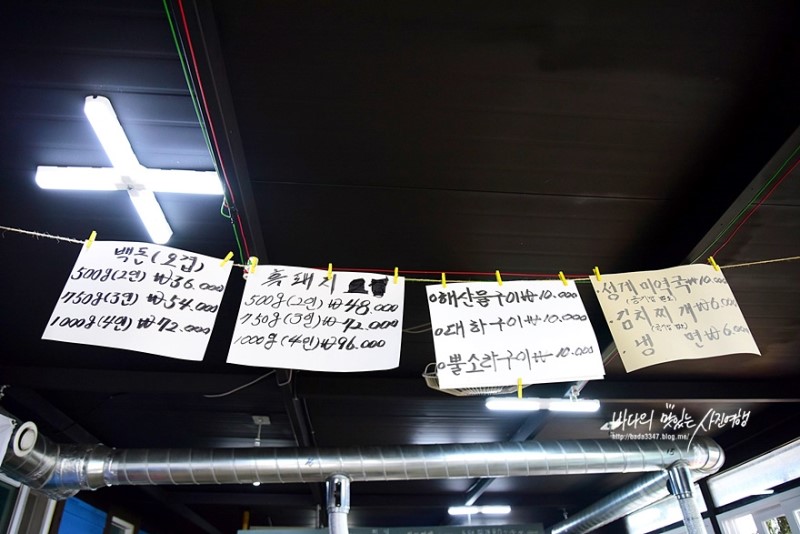 백돈(오겹)
500g(2인) ₩36.000
750g(3인) ₩54.000
1000g(4인) ₩72.000
흑돼지
500g(2인) ₩48.000
750g(3인) ₩72.000
1000g(4인) ₩96.000
해산물구이 ₩10.000
대하구이 ₩10.000
뿔소라구이 ₩10.000
성게미역국 ₩10.000
(공기밥 별도)
김치찌개 ₩6.000
(공기밥 별도)
냉면 ₩6.000
바다의 맛있는 사진여행
http://bada3347.blog.me/